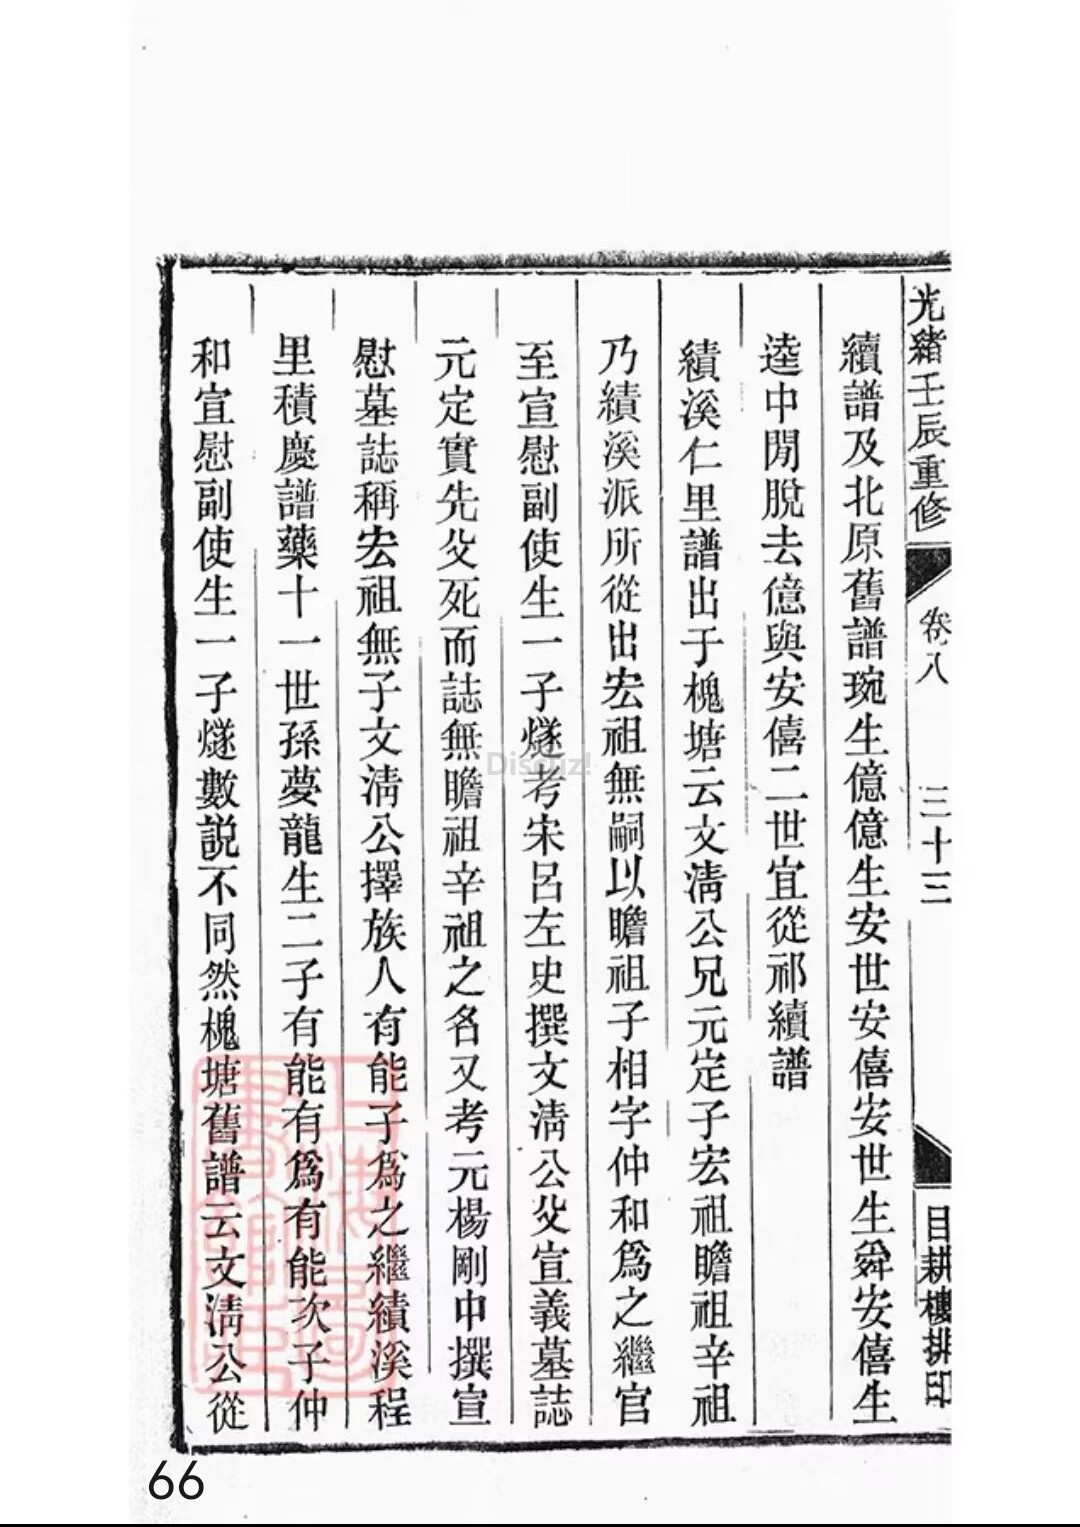 光緒壬辰重修
卷八
三十三
目耕樓排印
續譜及北原舊譜琬生億億生安世安僖安世生舜安僖生
逵中閒脫去億與安僖二世宜從祁續譜
績溪仁里譜出于槐塘云文淸公兄元定子宏祖瞻祖辛祖
乃績溪派所從出宏祖無嗣以瞻祖子相字仲和爲之繼官
至宣慰副使生一子燧考宋呂左史撰文淸公父宣義墓誌
元定實先父死而誌無瞻祖辛祖之名又考元楊剛中撰宣
慰墓誌稱宏祖無子文淸公擇族人有能子爲之繼績溪程
里積慶譜藥十一世孫夢龍生二子有能有爲有能次子仲
和宣慰副使生一子燧數說不同然槐塘舊譜云文淸公從
Discuz!
66